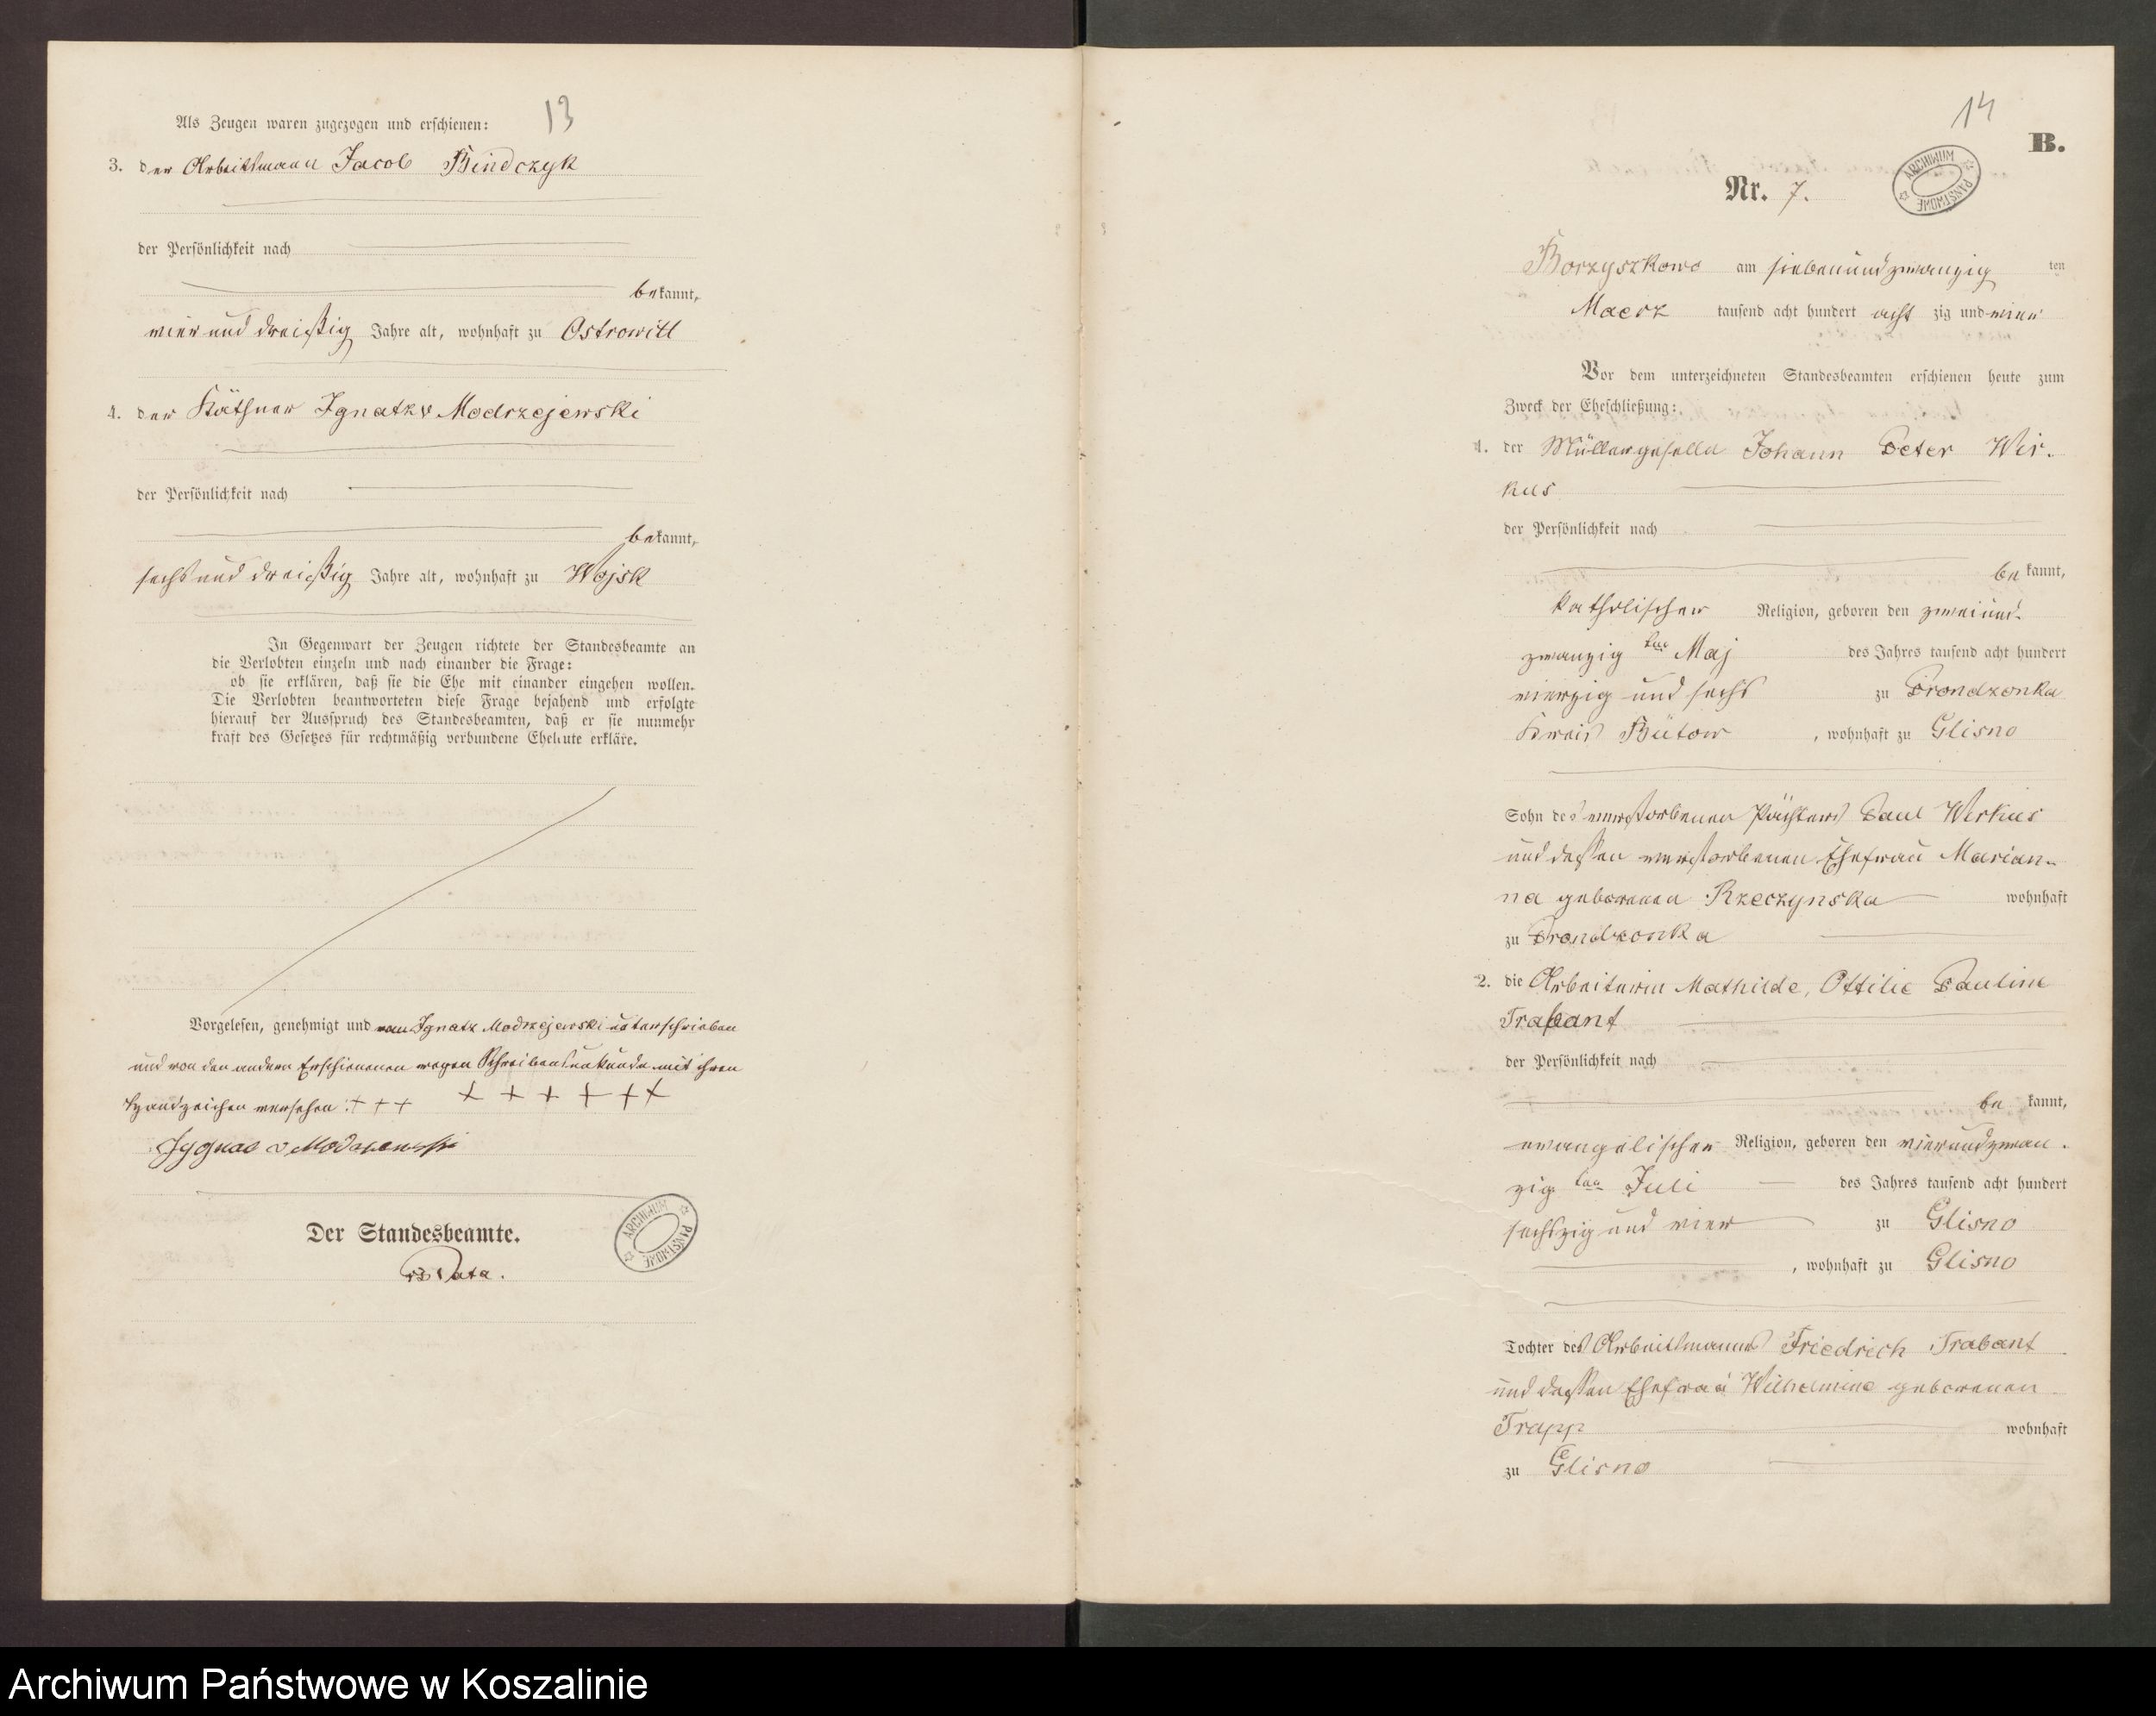 13
Als Zeugen waren zugezogen und erschienen:
3. der Arbeitsmann Jacob Bindczyk
der Persönlichkeit nach
bekannt,
vier und dreißig Jahre alt, wohnhaft zu Ostrowitt
4. der Käthner Ignatz v Modrzejewski
der Persönlichkeit nach
bekannt,
sechs und dreißig Jahre alt, wohnhaft zu Wojsk
In Gegenwart der Zeugen richtete der Standesbeamte an
die Verlobten einzeln und nach einander die Frage:
ob sie erklären, daß sie die Ehe mit einander eingehen wollen.
Die Verlobten beantworteten diese Frage bejahend und erfolgte
hierauf der Ausspruch des Standesbeamten, daß er sie nunmehr
kraft des Gesetzes für rechtmäßig verbundene Eheleute erkläre.
Vorgelesen, genehmigt und von Ignatz Modrzejewski unterschrieben
und von den andern Erschienenen wegen Schreibensunkunde mit ihren
Handzeichen versehen: + + + + + + + + +
Der Standesbeamte.
ARCHIWUM PAŃSTWOWE
14
B.
ARCHIWUM PAŃSTWOWE
Nr. 7.
Borzyszkowo am siebenundzwanzig ten
Maerz tausend acht hundert acht zig und vier
Vor dem unterzeichneten Standesbeamten erschienen heute zum
Zweck der Eheschließung:
1. der Müllergeselle Johann Peter Wir-
kus
der Persönlichkeit nach
be kannt,
katholischer Religion, geboren den zweiund-
zwanzig ten Maj des Jahres tausend acht hundert
vierzig und sechs zu Prondzonka
Kreis Bütow, wohnhaft zu Glisno
Sohn des verstorbenen Pächters Paul Wirkus
und dessen verstorbenen Ehefrau Marian-
na geborenen Rzeczynska wohnhaft
zu Prondzonka
2. die Arbeiterin Mathilde, Ottilie Pauline
Trabant
der Persönlichkeit nach
be kannt,
evangelischer Religion, geboren den vierundzwan-
zig ten Juli des Jahres tausend acht hundert
sechszig und vier zu Glisno
, wohnhaft zu Glisno
Tochter des Arbeitsmannes Friedrich Trabant
und dessen Ehefrau Wilhelmine geborenen
Trapp wohnhaft
zu Glisno
Archiwum Państwowe w Koszalinie